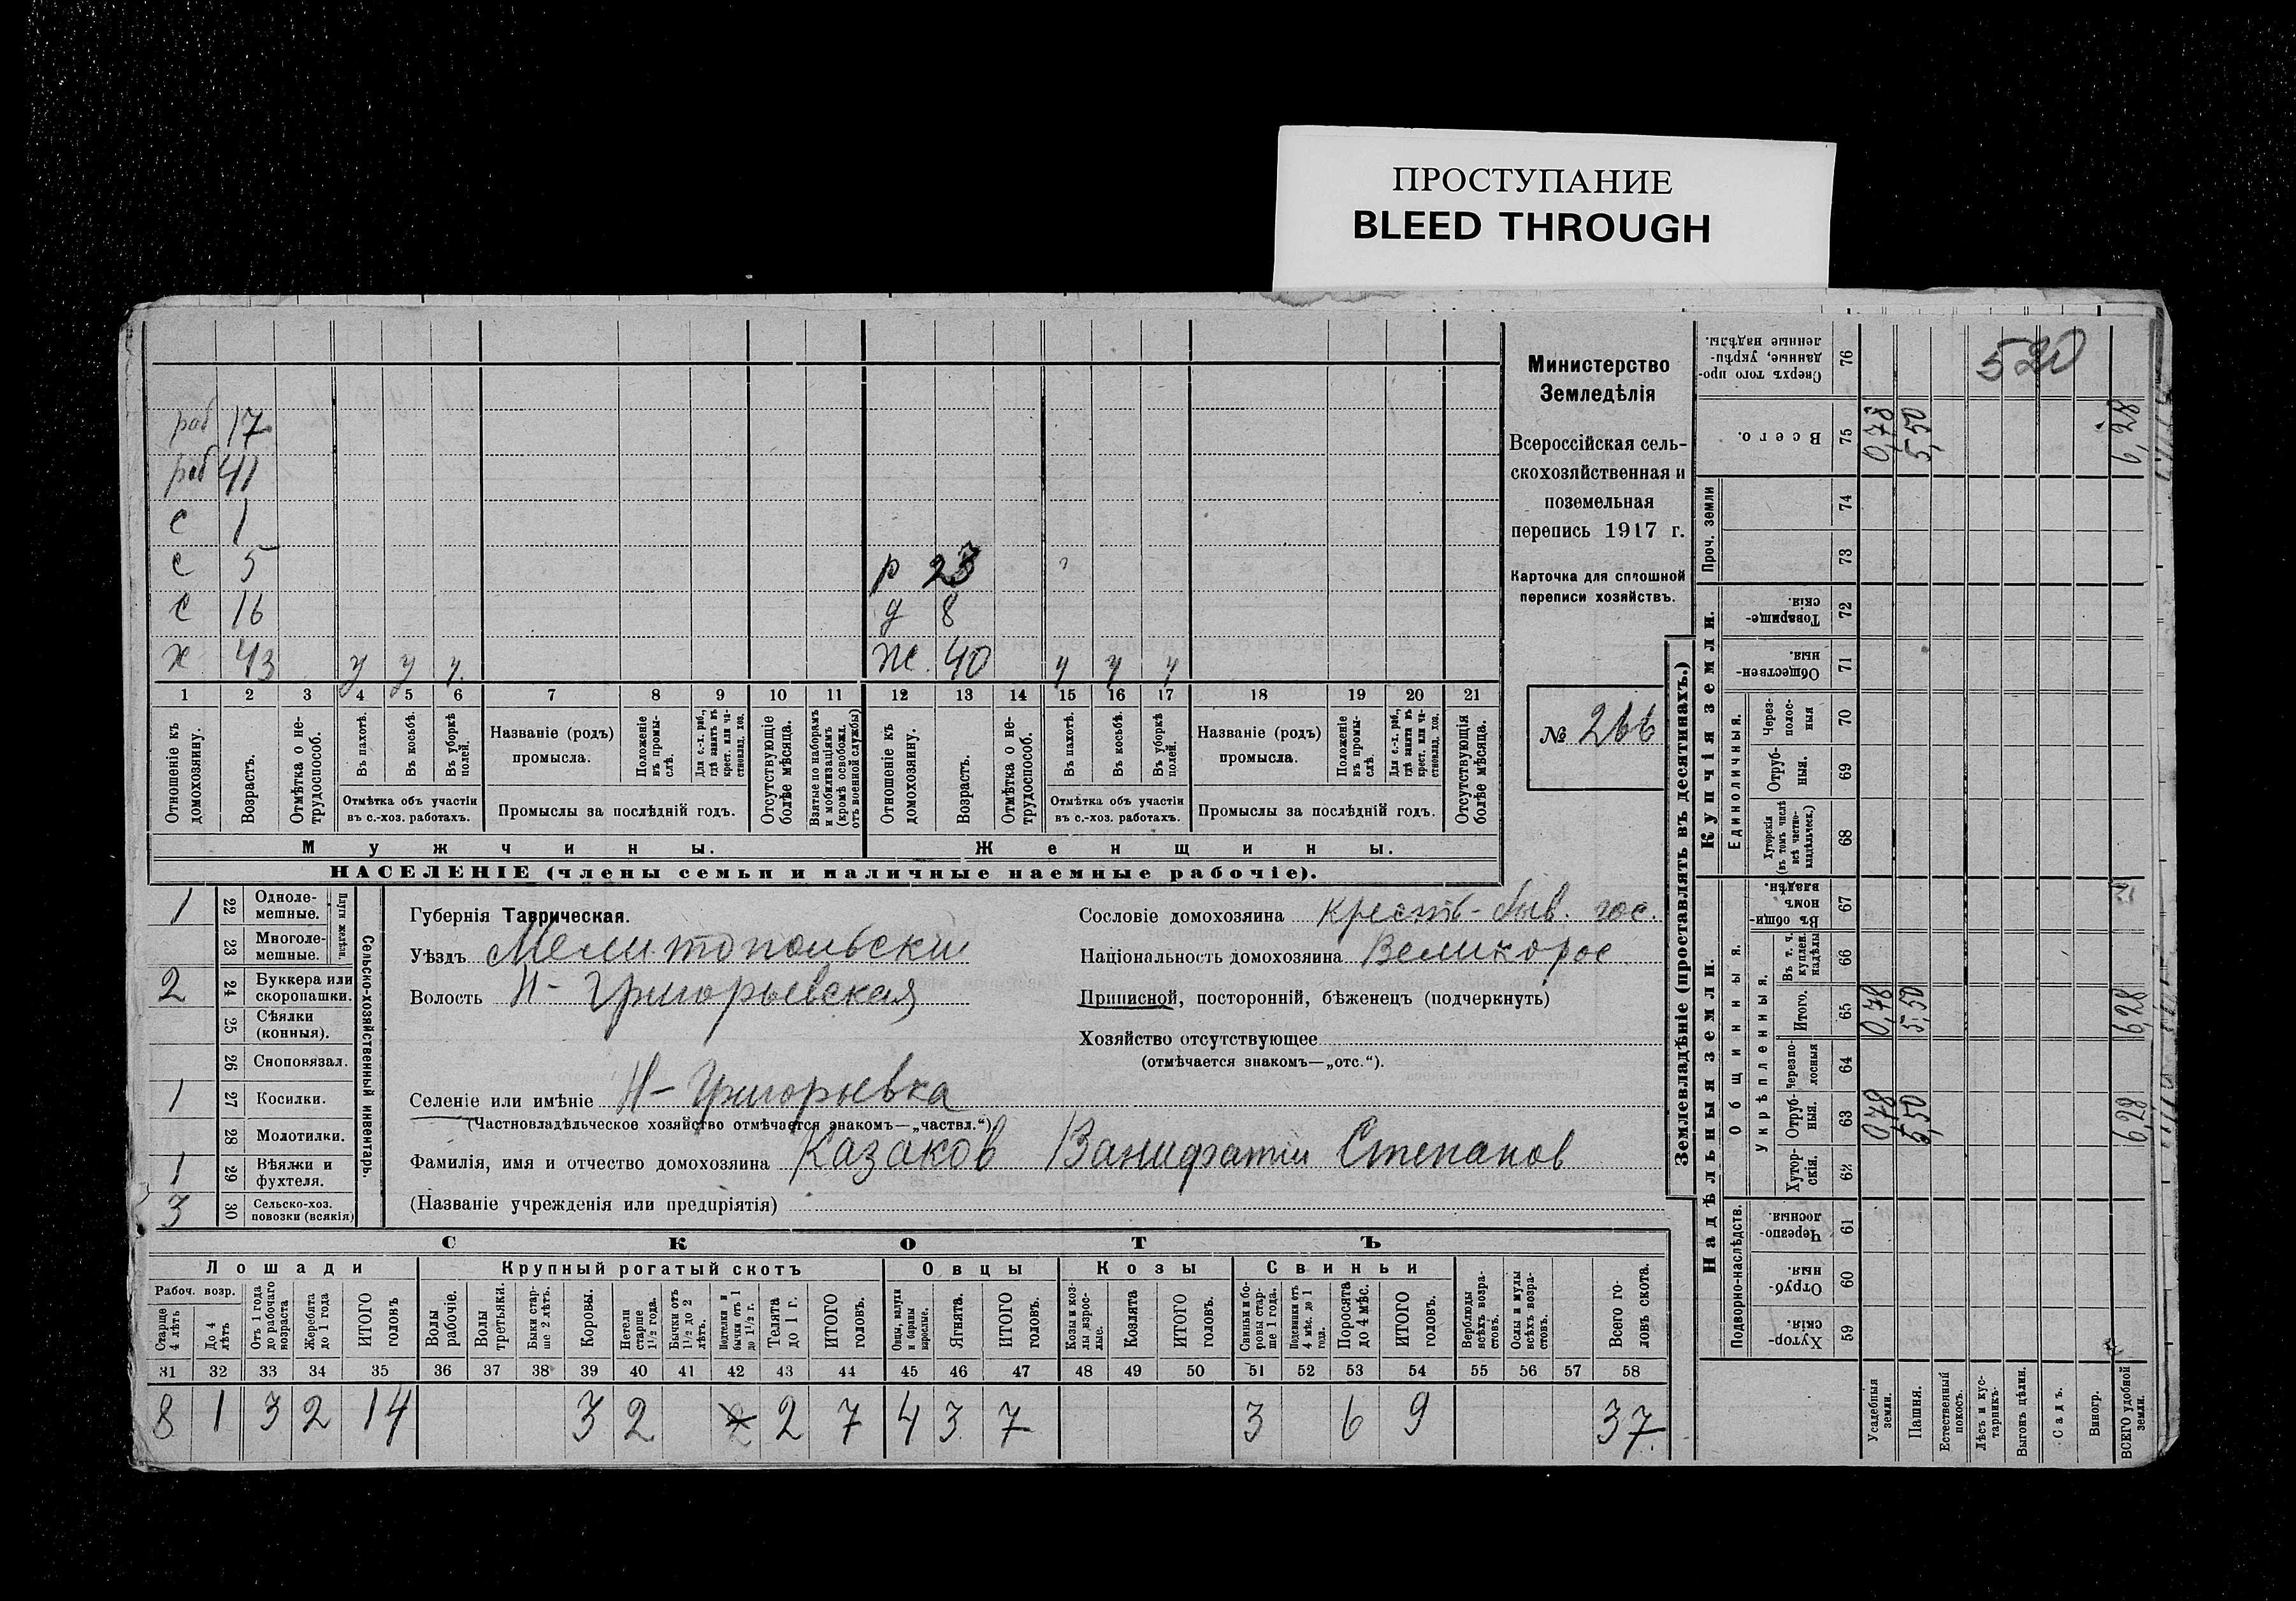 ПРОСТУПАНИЕ
BLEED THROUGH
раб 17
раб 41
с 1
с 5 р 23
с 16 д 8
х 43 у у у ж. 40 у у у
1 2 3 4 5 6 7 8 9 10 11 12 13 14 15 16 17 18 19 20 21
Отношеніе къ домохозяину.
Возрастъ.
Отмѣтка о не-трудоспособ.
Въ пахотѣ.
Въ косьбѣ.
Въ уборкѣ полей.
Отмѣтка объ участіи
въ с.-хоз. работахъ.
Названіе (родъ)
промысла.
Положеніе въ промы-слѣ.
Для с.-х. раб., гдѣ занятъ въ крест. или ча-стновлад. хоз.
Промыслы за послѣдній годъ.
Отсутствующіе болѣе мѣсяца.
Взятые по наборамъ и мобилизаціямъ (кромѣ освобожд. отъ военной службы)
Отношеніе къ домохозяину.
Возрастъ.
Отмѣтка о не-трудоспособ.
Въ пахотѣ.
Въ косьбѣ.
Въ уборкѣ полей.
Отмѣтка объ участіи
въ с.-хоз. работахъ.
Названіе (родъ)
промысла.
Положеніе въ промы-слѣ.
Для с.-х. раб., гдѣ занята въ крест. или ча-стновлад. хоз.
Промыслы за послѣдній годъ.
Отсутствующія болѣе мѣсяца.
Мужчины. Женщины.
НАСЕЛЕНІЕ (члены семьи и наличные наемные рабочіе).
Министерство
Земледѣлія
Всероссійская сель-
скохозяйственная и
поземельная
перепись 1917 г.
Карточка для сплошной
переписи хозяйствъ.
№ 266
1 22 Одноле-мешные.
23 Многоле-мешные.
Плуги желѣзн.
2 24 Буккера или скоропашки.
25 Сѣялки (конныя).
26 Сноповязал.
1 27 Косилки.
28 Молотилки.
1 29 Вѣялки и фухтеля.
3 30 Сельско-хоз. повозки (всякія)
Сельско-хозяйственный инвентарь.
Губернія Таврическая.
Уѣздъ Мелитопольски
Волость Н-Григорьевская
Селеніе или имѣніе Н-Григорьевка
(Частновладѣльческое хозяйство отмѣчается знакомъ—„частвл.“)
Фамилія, имя и отчество домохозяина Казаков Ванифатии Степанов
(Названіе учрежденія или предпріятія)
Сословіе домохозяина Крестъ-быв. гос.
Національность домохозяина Великорос.
Приписной, посторонній, бѣженецъ (подчеркнуть)
Хозяйство отсутствующее
(отмѣчается знакомъ—„отс.“).
СКОТЪ
Лошади Крупный рогатый скотъ Овцы Козы Свиньи
Рабоч. возр.
Старше 4 лѣтъ
До 4 лѣтъ
Отъ 1 года до рабочаго возраста
Жеребята до 1 года
ИТОГО головъ
Волы рабочіе.
Волы третьяки.
Быки стар-ше 2 лѣтъ.
Коровы.
Нетели старше 1½ года.
Бычки отъ 1½ до 2 лѣтъ.
Подтелки и бычки отъ 1 до 1½ г.
Телята до 1 г.
ИТОГО головъ.
Овцы, валухи и бараны взрослые.
Ягнята.
ИТОГО головъ.
Козы и коз-лы взрос-лые.
Козлята
ИТОГО головъ.
Свиньи и бо-ровы стар-ше 1 года.
Подсвинки отъ 4 мѣс. до 1 года.
Поросята до 4 мѣс.
ИТОГО головъ.
Верблюды всѣхъ возра-стовъ.
Ослы и мулы всѣхъ возра-стовъ.
Всего го-ловъ скота.
31 32 33 34 35 36 37 38 39 40 41 42 43 44 45 46 47 48 49 50 51 52 53 54 55 56 57 58
8 1 3 2 14 3 2 2 7 4 3 7 3 6 9 37
Землевладѣніе (проставлять въ десятинахъ.)
Купчія земли.
Надѣльныя земли.
Проч. земли
Единоличныя.
Общинныя.
Укрѣпленныя.
Подворно-наслѣдств.
Сверхъ того про-данные, укрѣп-ленные надѣлы. 76
Всего. 75 0,78 5,50 6,28
74
73
Товарище-скія. 72
Обществен-ныя. 71
Через-полос-ныя 70
Отруб-ныя. 69
Хуторскія (въ томъ числѣ всѣ частно-владѣльческ.) 68
Въ общи-номъ владѣн. 67
Въ т. ч. куплен. надѣлы 66
Итого. 65 0,78 5,50 6,28
Черезпо-лосныя 64
Отруб-ныя. 63 0,78 5,50 6,28
Хутор-скія. 62
Черезпо-лосныя. 61
Отруб-ныя. 60
Хутор-скія. 59
520
Усадебныя земли.
Пашня.
Естественный покосъ.
Лѣсъ и кус-тарникъ.
Выгонъ цѣлин.
Садъ.
Виногр.
ВСЕГО удобной земли.